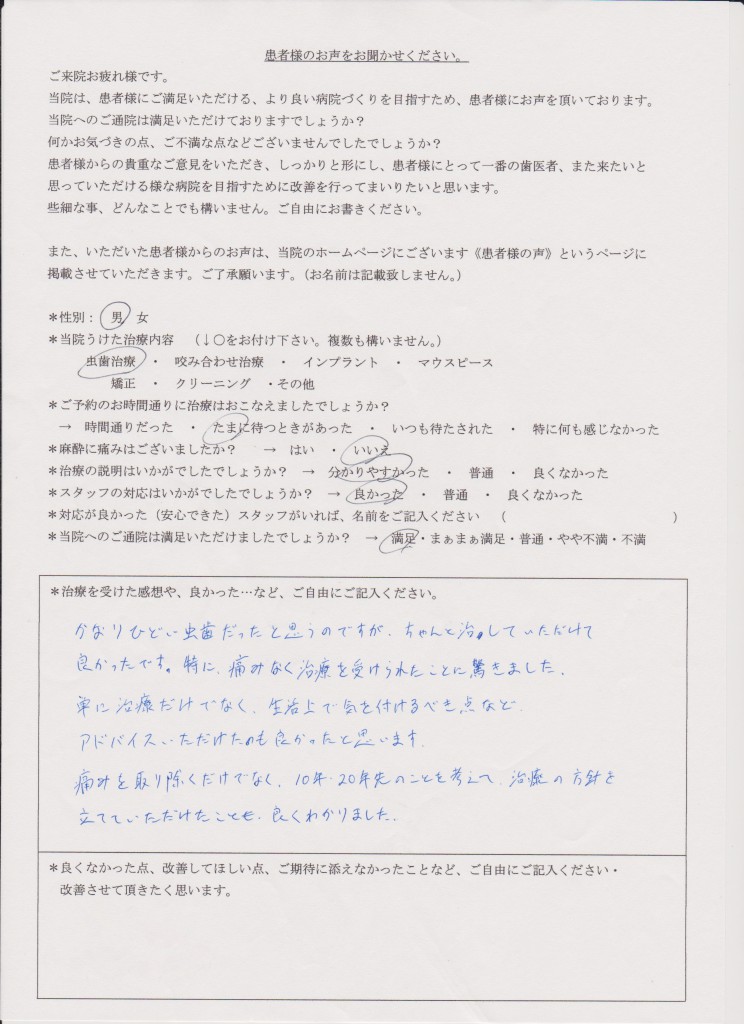 患者様のお声をお聞かせください。
ご来院お疲れ様です。
当院は、患者様にご満足いただける、より良い病院づくりを目指すため、患者様にお声を頂いております。
当院へのご通院は満足いただけておりますでしょうか？
何かお気づきの点、ご不満な点などございませんでしたでしょうか？
患者様からの貴重なご意見をいただき、しっかりと形にし、患者様にとって一番の歯医者、また来たいと
思っていただける様な病院を目指すために改善を行ってまいりたいと思います。
些細な事、どんなことでも構いません。ご自由にお書きください。
また、いただいた患者様からのお声は、当院のホームページにございます《患者様の声》というページに
掲載させていただきます。ご了承願います。（お名前は記載致しません。）
＊性別： 男 女
＊当院うけた治療内容 （↓○をお付け下さい。複数も構いません。）
虫歯治療 ・ 咬み合わせ治療 ・ インプラント ・ マウスピース
矯正 ・ クリーニング ・その他
＊ご予約のお時間通りに治療はおこなえましたでしょうか？
→ 時間通りだった ・ たまに待つときがあった ・ いつも待たされた ・ 特に何も感じなかった
＊麻酔に痛みはございましたか？ → はい ・ いいえ
＊治療の説明はいかがでしたでしょうか？ → 分かりやすかった ・ 普通 ・ 良くなかった
＊スタッフの対応はいかがでしたでしょうか？ → 良かった ・ 普通 ・ 良くなかった
＊対応が良かった（安心できた）スタッフがいれば、名前をご記入ください （ ）
＊当院へのご通院は満足いただけましたでしょうか？ → 満足・まぁまぁ満足・普通・やや不満・不満
＊治療を受けた感想や、良かった…など、ご自由にご記入ください。
かなりひどい虫歯だったと思うのですが、ちゃんと治していただけて
良かったです。特に、痛みなく治療を受けられたことに驚きました。
単に治療だけでなく、生活上で気を付けるべき点など
アドバイスいただけたのも良かったと思います。
痛みを取り除くだけでなく、10年・20年先のことを考えて、治療の方針を
立てていただけたことも、良くわかりました。
＊良くなかった点、改善してほしい点、ご期待に添えなかったことなど、ご自由にご記入ください・
改善させて頂きたく思います。